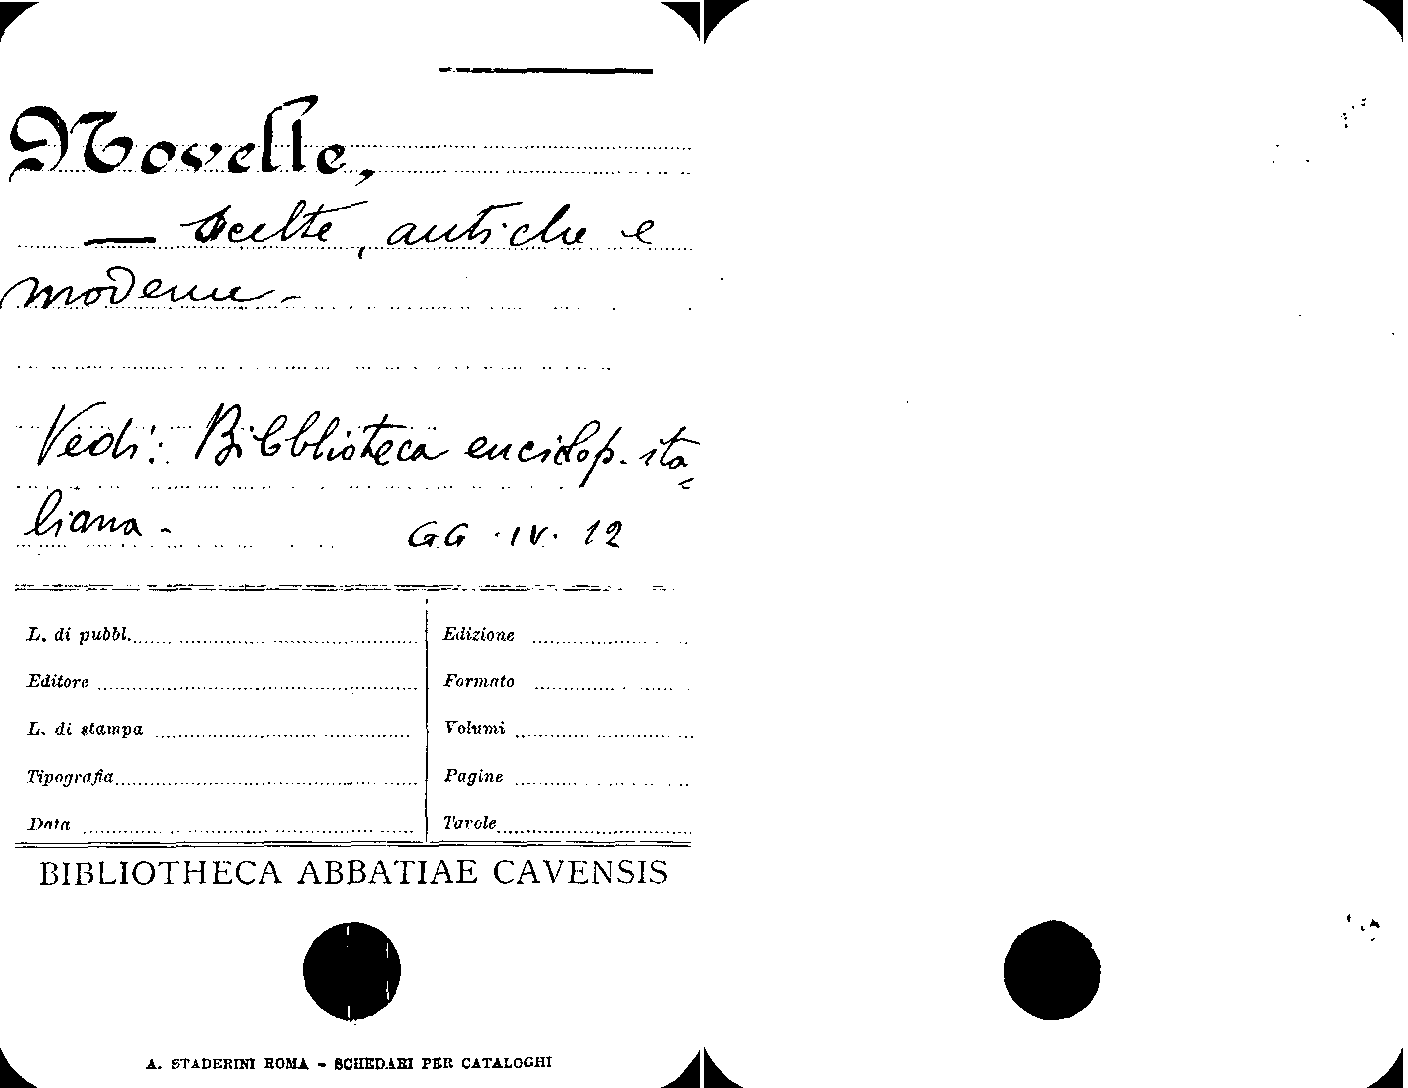 Novelle,
— scelte, antiche e
moderne -
Vedi: Bibblioteca enciclop. ita-
liana - GG · IV · 12
L. di pubbl. Edizione
Editore Formato
L. di stampa Volumi
Tipografia Pagine
Data Tavole
BIBLIOTHECA ABBATIAE CAVENSIS
A. STADERINI ROMA - SCHEDARI PER CATALOGHI